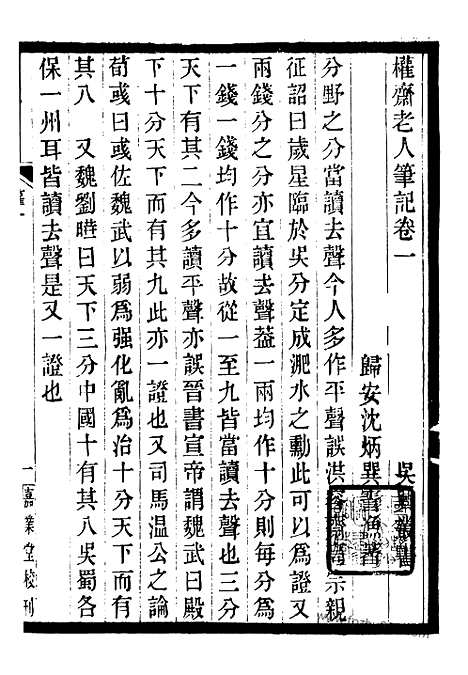 權齋老人筆記卷一
吳興叢書
歸安沈炳巽繹旃著
分野之分當讀去聲今人多作平聲誤洪容齋謂宗親
征詔曰歲星臨於吳分定成淝水之勳此可以為證又
兩錢分之分亦宜讀去聲葢一兩均作十分則每分為
一錢一錢均作十分故從一至九皆當讀去聲也三分
天下有其二今多讀平聲亦誤晉書宣帝謂魏武曰殿
下十分天下而有其九此亦一證也又司馬溫公之論
荀彧曰彧佐魏武以弱為强化亂為治十分天下而有
其八 又魏劉曄曰天下三分中國十有其八吳蜀各
保一州耳皆讀去聲是又一證也
一
嘉業堂校刊